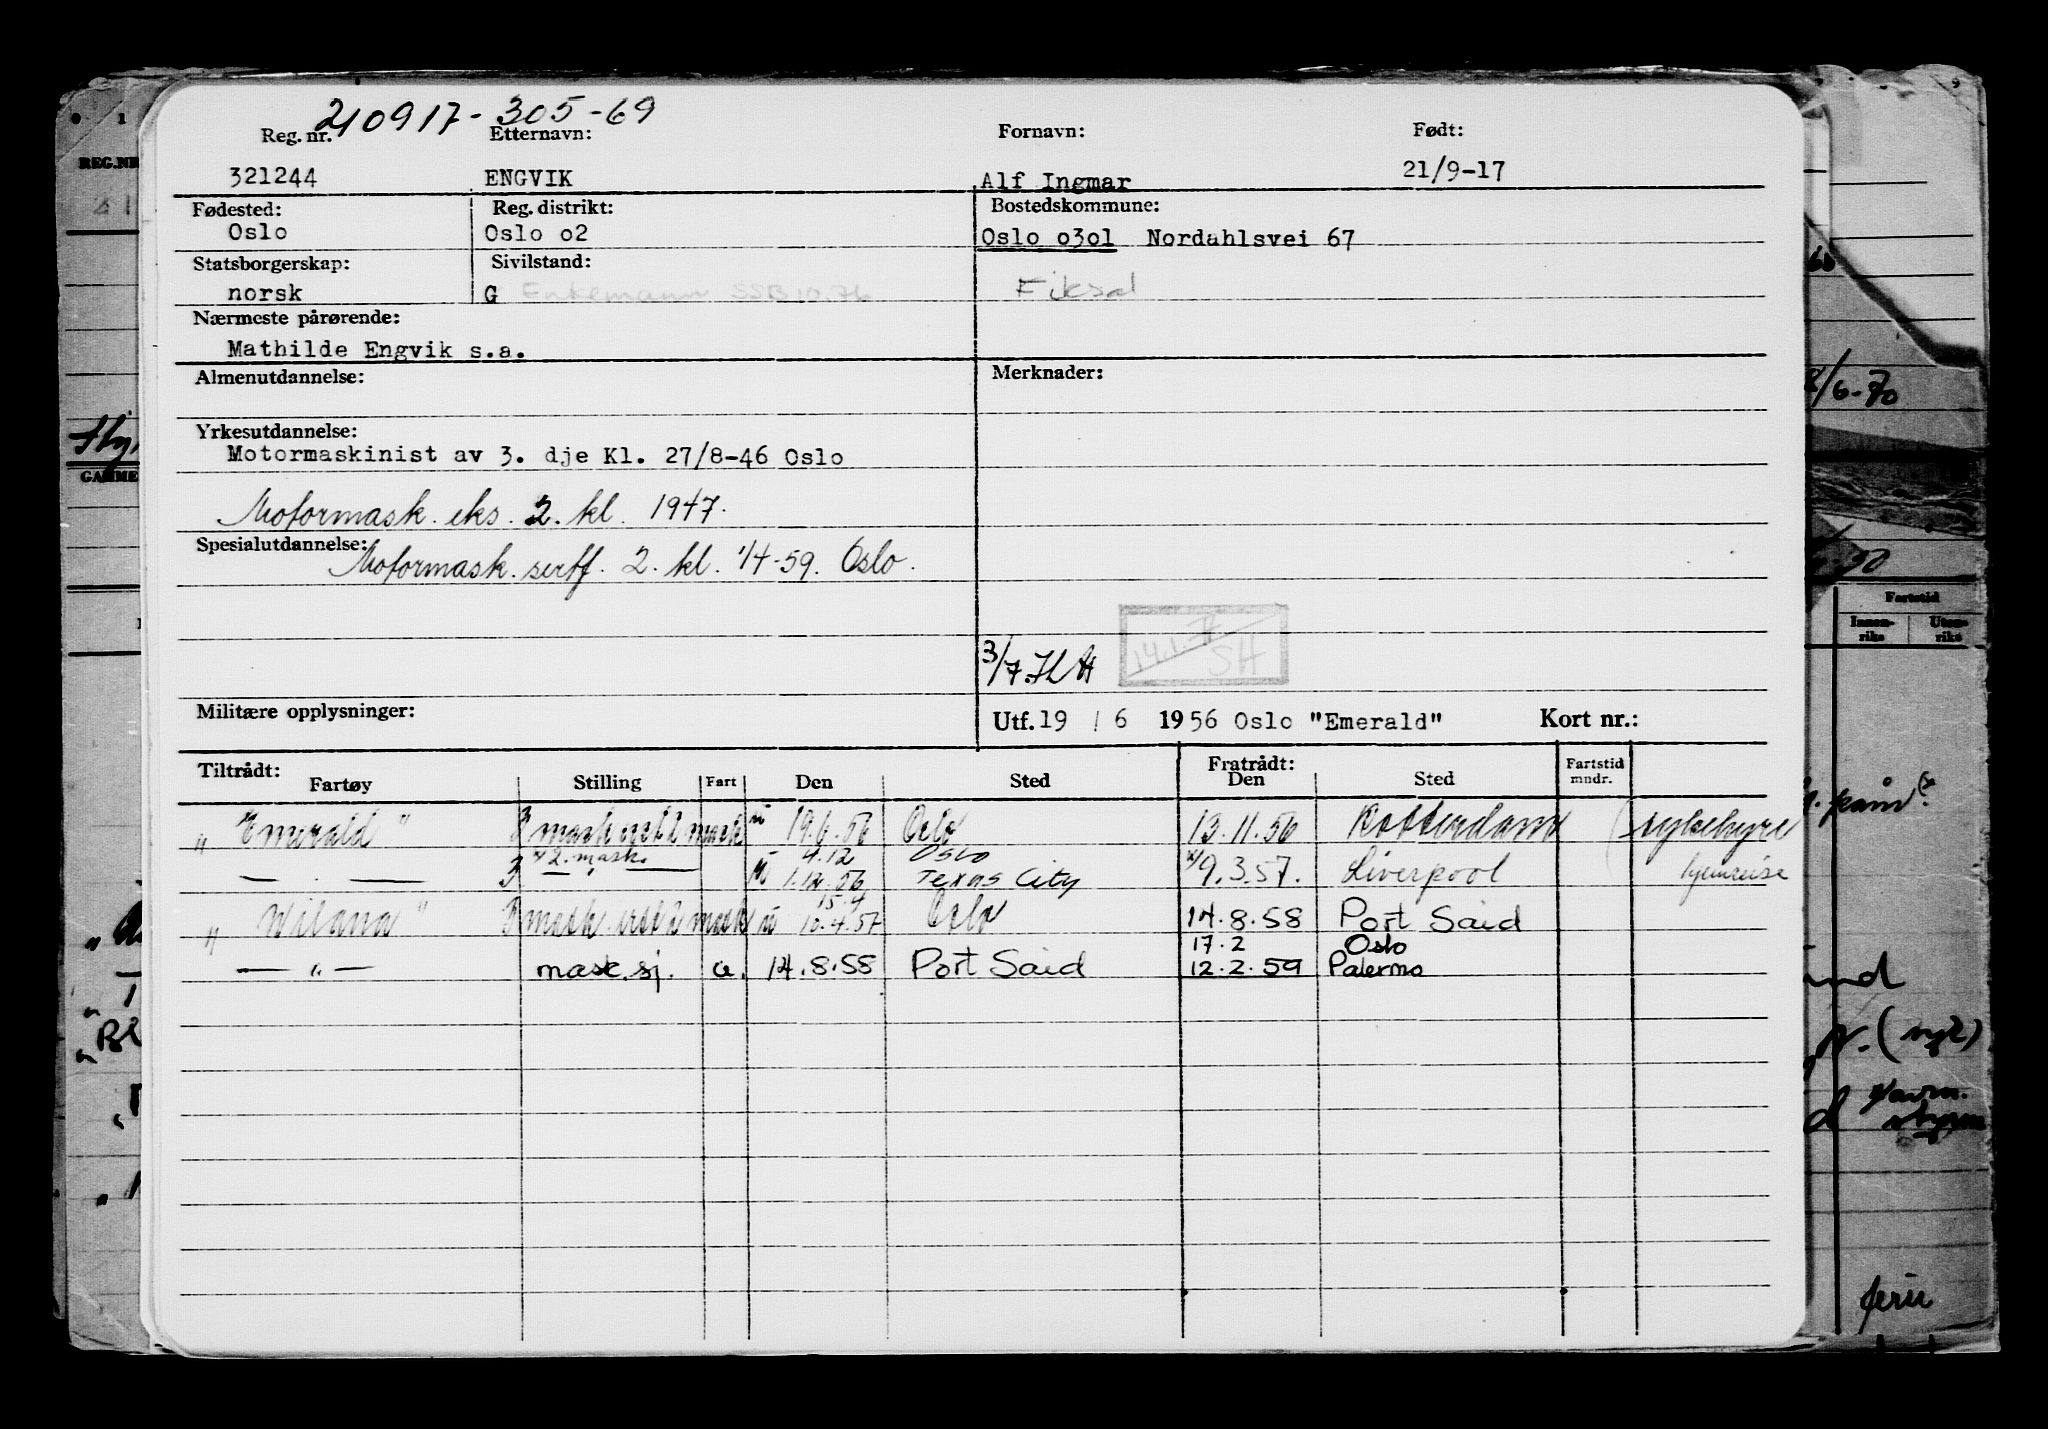 210917-305-69
Reg. nr. Etternavn: Fornavn: Født:
321244 ENGVIK Alf Ingmar 21/9-17
Fødested: Reg. distrikt: Bostedskommune:
Oslo Oslo o2 Oslo o3o1 Nordahlsvei 67
Statsborgerskap: Sivilstand:
norsk G Enkemann SSB 10.76
Nærmeste pårørende:
Mathilde Engvik s.a.
Almenutdannelse: Merknader:
Yrkesutdannelse:
Motormaskinist av 3. dje Kl. 27/8-46 Oslo
Motormask. eks. 2. kl. 1947.
Spesialutdannelse: Motormask. sertf. 2. kl. 1/4-59. Oslo.
SH
Militære opplysninger: Utf. 19 / 6 1956 Oslo "Emerald" Kort nr.:
Tiltrådt: Fratrådt: Fartstid
Fartøy Stilling Fart Den Sted Den Sted mndr.
"Emerald" 3 mask 2 mask u 19.6.56 Oslo 13.11.56 Rotterdam sykehyre
2. mask. 4.12 Oslo
— " — 3 — " — u 1.12.56 Texas City 9.3.57. Liverpool hjemreise
15.4
"Wilana" 3 mask 2 mask u 10.4.57 Oslo 14.8.58 Port Said
17.2 Oslo
— " — mask. sj. u. 14.8.58 Port Said 12.2.59 Palermo
REG.NR
GAMME
8/6-70
Fartstid
Innen-riks Uten-riks